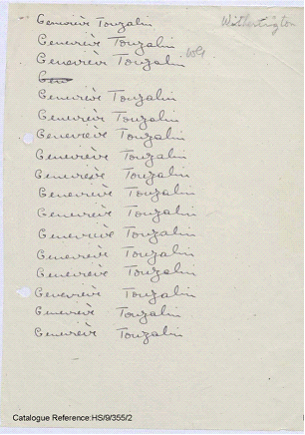 Geneviève Touzalin Witherington
Geneviève Touzalin
Geneviève Touzalin
Gen
Geneviève Touzalin
Geneviève Touzalin
Geneviève Touzalin
Geneviève Touzalin
Geneviève Touzalin
Geneviève Touzalin
Geneviève Touzalin
Geneviève Touzalin
Geneviève Touzalin
Geneviève Touzalin
Geneviève Touzalin
Geneviève Touzalin
Geneviève Touzalin
Catalogue Reference:HS/9/355/2